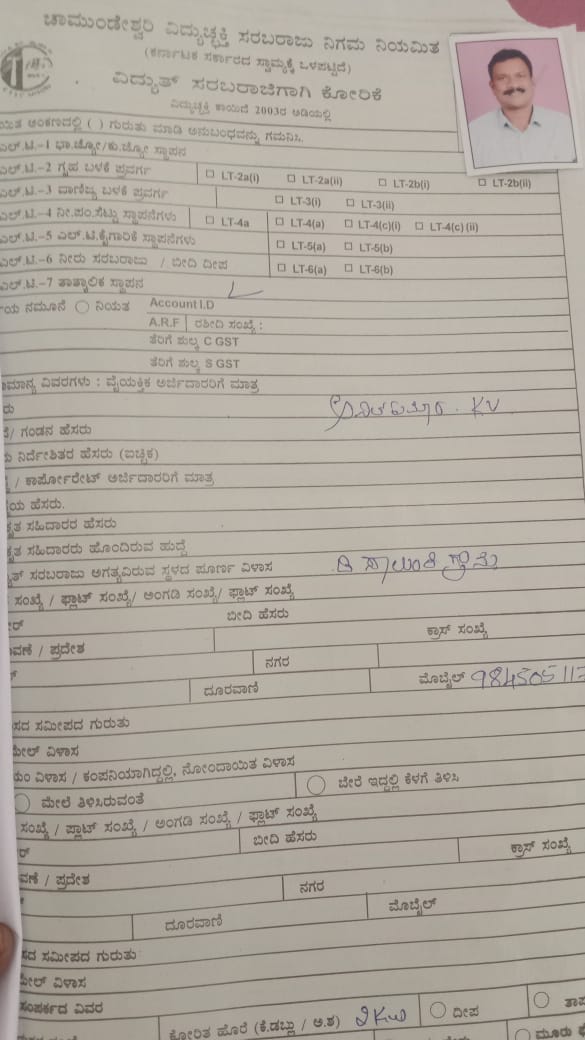 ಚಾಮುಂಡೇಶ್ವರಿ ವಿದ್ಯುಚ್ಛಕ್ತಿ ಸರಬರಾಜು ನಿಗಮ ನಿಯಮಿತ
(ಕರ್ನಾಟಕ ಸರ್ಕಾರದ ಸ್ವಾಮ್ಯಕ್ಕೆ ಒಳಪಟ್ಟಿದೆ)
ವಿದ್ಯುತ್ ಸರಬರಾಜಿಗಾಗಿ ಕೋರಿಕೆ
ವಿದ್ಯುಚ್ಛಕ್ತಿ ಕಾಯಿದೆ 2003ರ ಅಡಿಯಲ್ಲಿ
ಅಂಕಣದಲ್ಲಿ ( ) ಗುರುತು ಮಾಡಿ ಅನುಬಂಧವನ್ನು ಗಮನಿಸಿ.
ಎಲ್.ಟಿ.-1 ಭಾ.ಜ್ಯೋ/ಕು.ಜ್ಯೋ ಸ್ಥಾಪನ
ಎಲ್.ಟಿ.-2 ಗೃಹ ಬಳಕೆ ಪ್ರವರ್ಗ □ LT-2a(i) □ LT-2a(ii) □ LT-2b(i) □ LT-2b(ii)
ಎಲ್.ಟಿ.-3 ವಾಣಿಜ್ಯ ಬಳಕೆ ಪ್ರವರ್ಗ □ LT-3(i) □ LT-3(ii)
ಎಲ್.ಟಿ.-4 ನೀ.ಪಂ.ಸೆಟ್ಟು ಸ್ಥಾಪನೆಗಳು □ LT-4a □ LT-4(a) □ LT-4(c)(i) □ LT-4(c) (ii)
ಎಲ್.ಟಿ.-5 ಎಲ್.ಟಿ.ಕೈಗಾರಿಕೆ ಸ್ಥಾಪನೆಗಳು □ LT-5(a) □ LT-5(b)
ಎಲ್.ಟಿ.-6 ನೀರು ಸರಬರಾಜು / ಬೀದಿ ದೀಪ □ LT-6(a) □ LT-6(b)
ಎಲ್.ಟಿ.-7 ತಾತ್ಕಾಲಿಕ ಸ್ಥಾಪನ
ನಮೂನೆ ನಿಯತ Account I.D
A.R.F ರಶೀದಿ ಸಂಖ್ಯೆ :
ತೆರಿಗೆ ಶುಲ್ಕ C GST
ತೆರಿಗೆ ಶುಲ್ಕ S GST
ವಿವರಗಳು : ವೈಯಕ್ತಿಕ ಅರ್ಜಿದಾರರಿಗೆ ಮಾತ್ರ
KV
/ ಗಂಡನ ಹೆಸರು
ನಿರ್ದೇಶಿತರ ಹೆಸರು (ಐಚ್ಛಿಕ)
/ ಕಾರ್ಪೋರೇಟ್ ಅರ್ಜಿದಾರರಿಗೆ ಮಾತ್ರ
ಹೆಸರು.
ಸಹಿದಾರರ ಹೆಸರು
ಸಹಿದಾರರು ಹೊಂದಿರುವ ಹುದ್ದೆ
ಸರಬರಾಜು ಅಗತ್ಯವಿರುವ ಸ್ಥಳದ ಪೂರ್ಣ ವಿಳಾಸ
ಸಂಖ್ಯೆ / ಫ್ಲಾಟ್ ಸಂಖ್ಯೆ/ ಅಂಗಡಿ ಸಂಖ್ಯೆ/ ಫ್ಲಾಟ್ ಸಂಖ್ಯೆ
ಬೀದಿ ಹೆಸರು
/ ಪ್ರದೇಶ ಕ್ರಾಸ್ ಸಂಖ್ಯೆ
ನಗರ
ದೂರವಾಣಿ ಮೊಬೈಲ್
ಸಮೀಪದ ಗುರುತು
ವಿಳಾಸ
ವಿಳಾಸ / ಕಂಪನಿಯಾಗಿದ್ದಲ್ಲಿ, ನೋಂದಾಯಿತ ವಿಳಾಸ
ಮೇಲೆ ತಿಳಿಸಿರುವಂತೆ ಬೇರೆ ಇದ್ದಲ್ಲಿ ಕೆಳಗೆ ತಿಳಿಸಿ
ಸಂಖ್ಯೆ / ಪ್ಲಾಟ್ ಸಂಖ್ಯೆ / ಅಂಗಡಿ ಸಂಖ್ಯೆ / ಫ್ಲಾಟ್ ಸಂಖ್ಯೆ
ಬೀದಿ ಹೆಸರು
/ ಪ್ರದೇಶ ಕ್ರಾಸ್ ಸಂಖ್ಯೆ
ನಗರ
ದೂರವಾಣಿ ಮೊಬೈಲ್
ಸಮೀಪದ ಗುರುತು
ವಿಳಾಸ
ಸಂಪರ್ಕದ ವಿವರ
ಕೋರಿತ ಹೊರೆ (ಕೆ.ಡಬ್ಲು / ಅ.ಶ) 2KW ದೀಪ
ಮೂರು